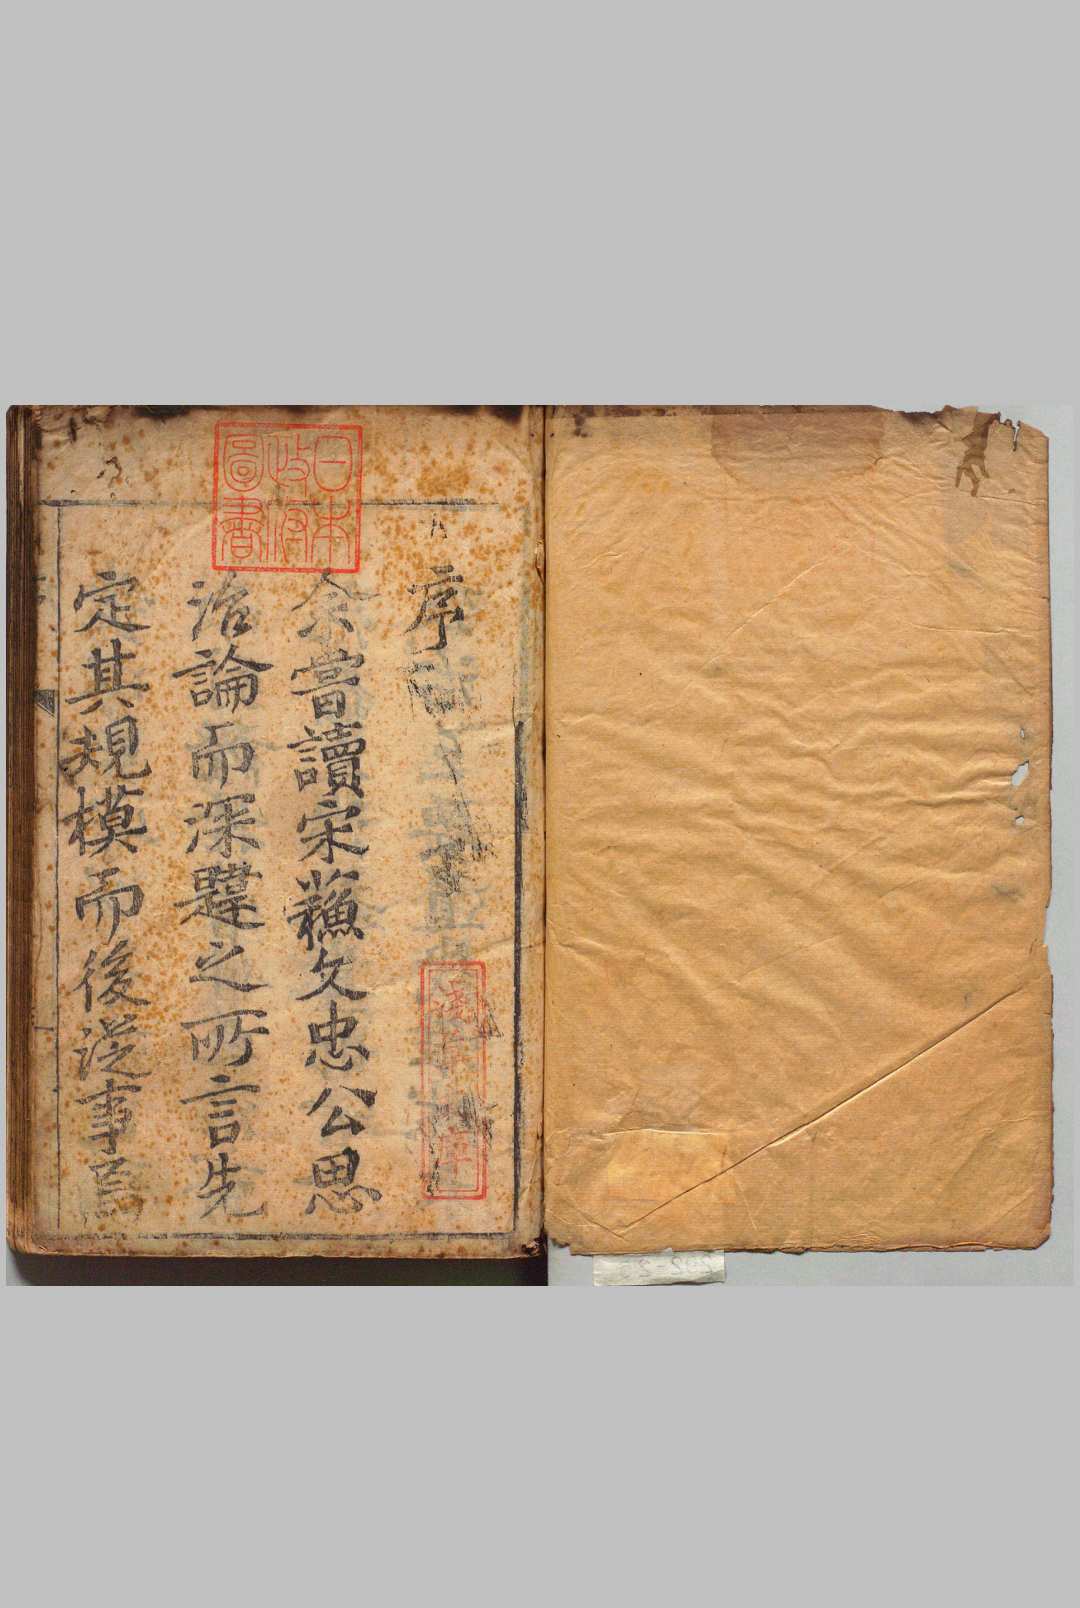 序
余嘗讀宋蘓文忠公思
治論而深韙之所言先
定其規模而後從事焉
日本
政府
圖書